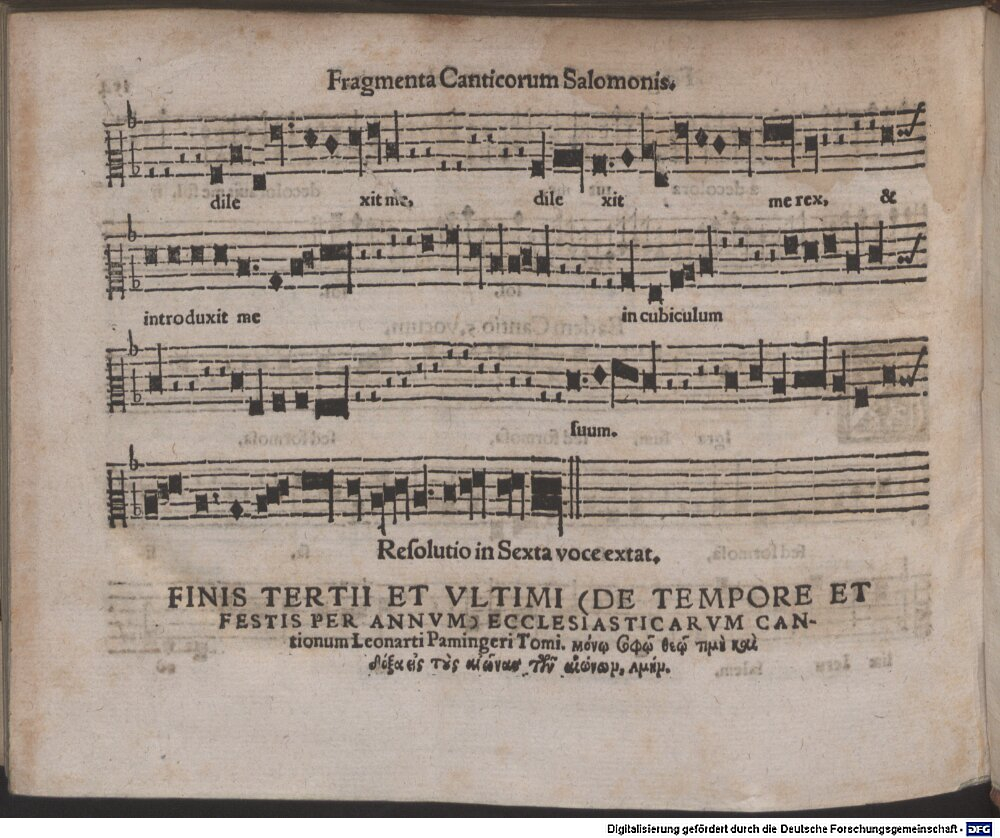 Fragmenta Canticorum Salomonis.
dile xit me, dile xit me rex, &
introduxit me in cubiculum
suum.
Resolutio in Sexta voce extat.
FINIS TERTII ET VLTIMI (DE TEMPORE ET
FESTIS PER ANNVM) ECCLESIASTICARVM CAN-
tionum Leonarti Pamingeri Tomi. μόνῳ σοφῷ θεῷ τιμὴ καὶ
δόξα εἰς τοὺς αἰῶνας τῶν αἰώνων, Αμήν.
Digitalisierung gefördert durch die Deutsche Forschungsgemeinschaft - DFG